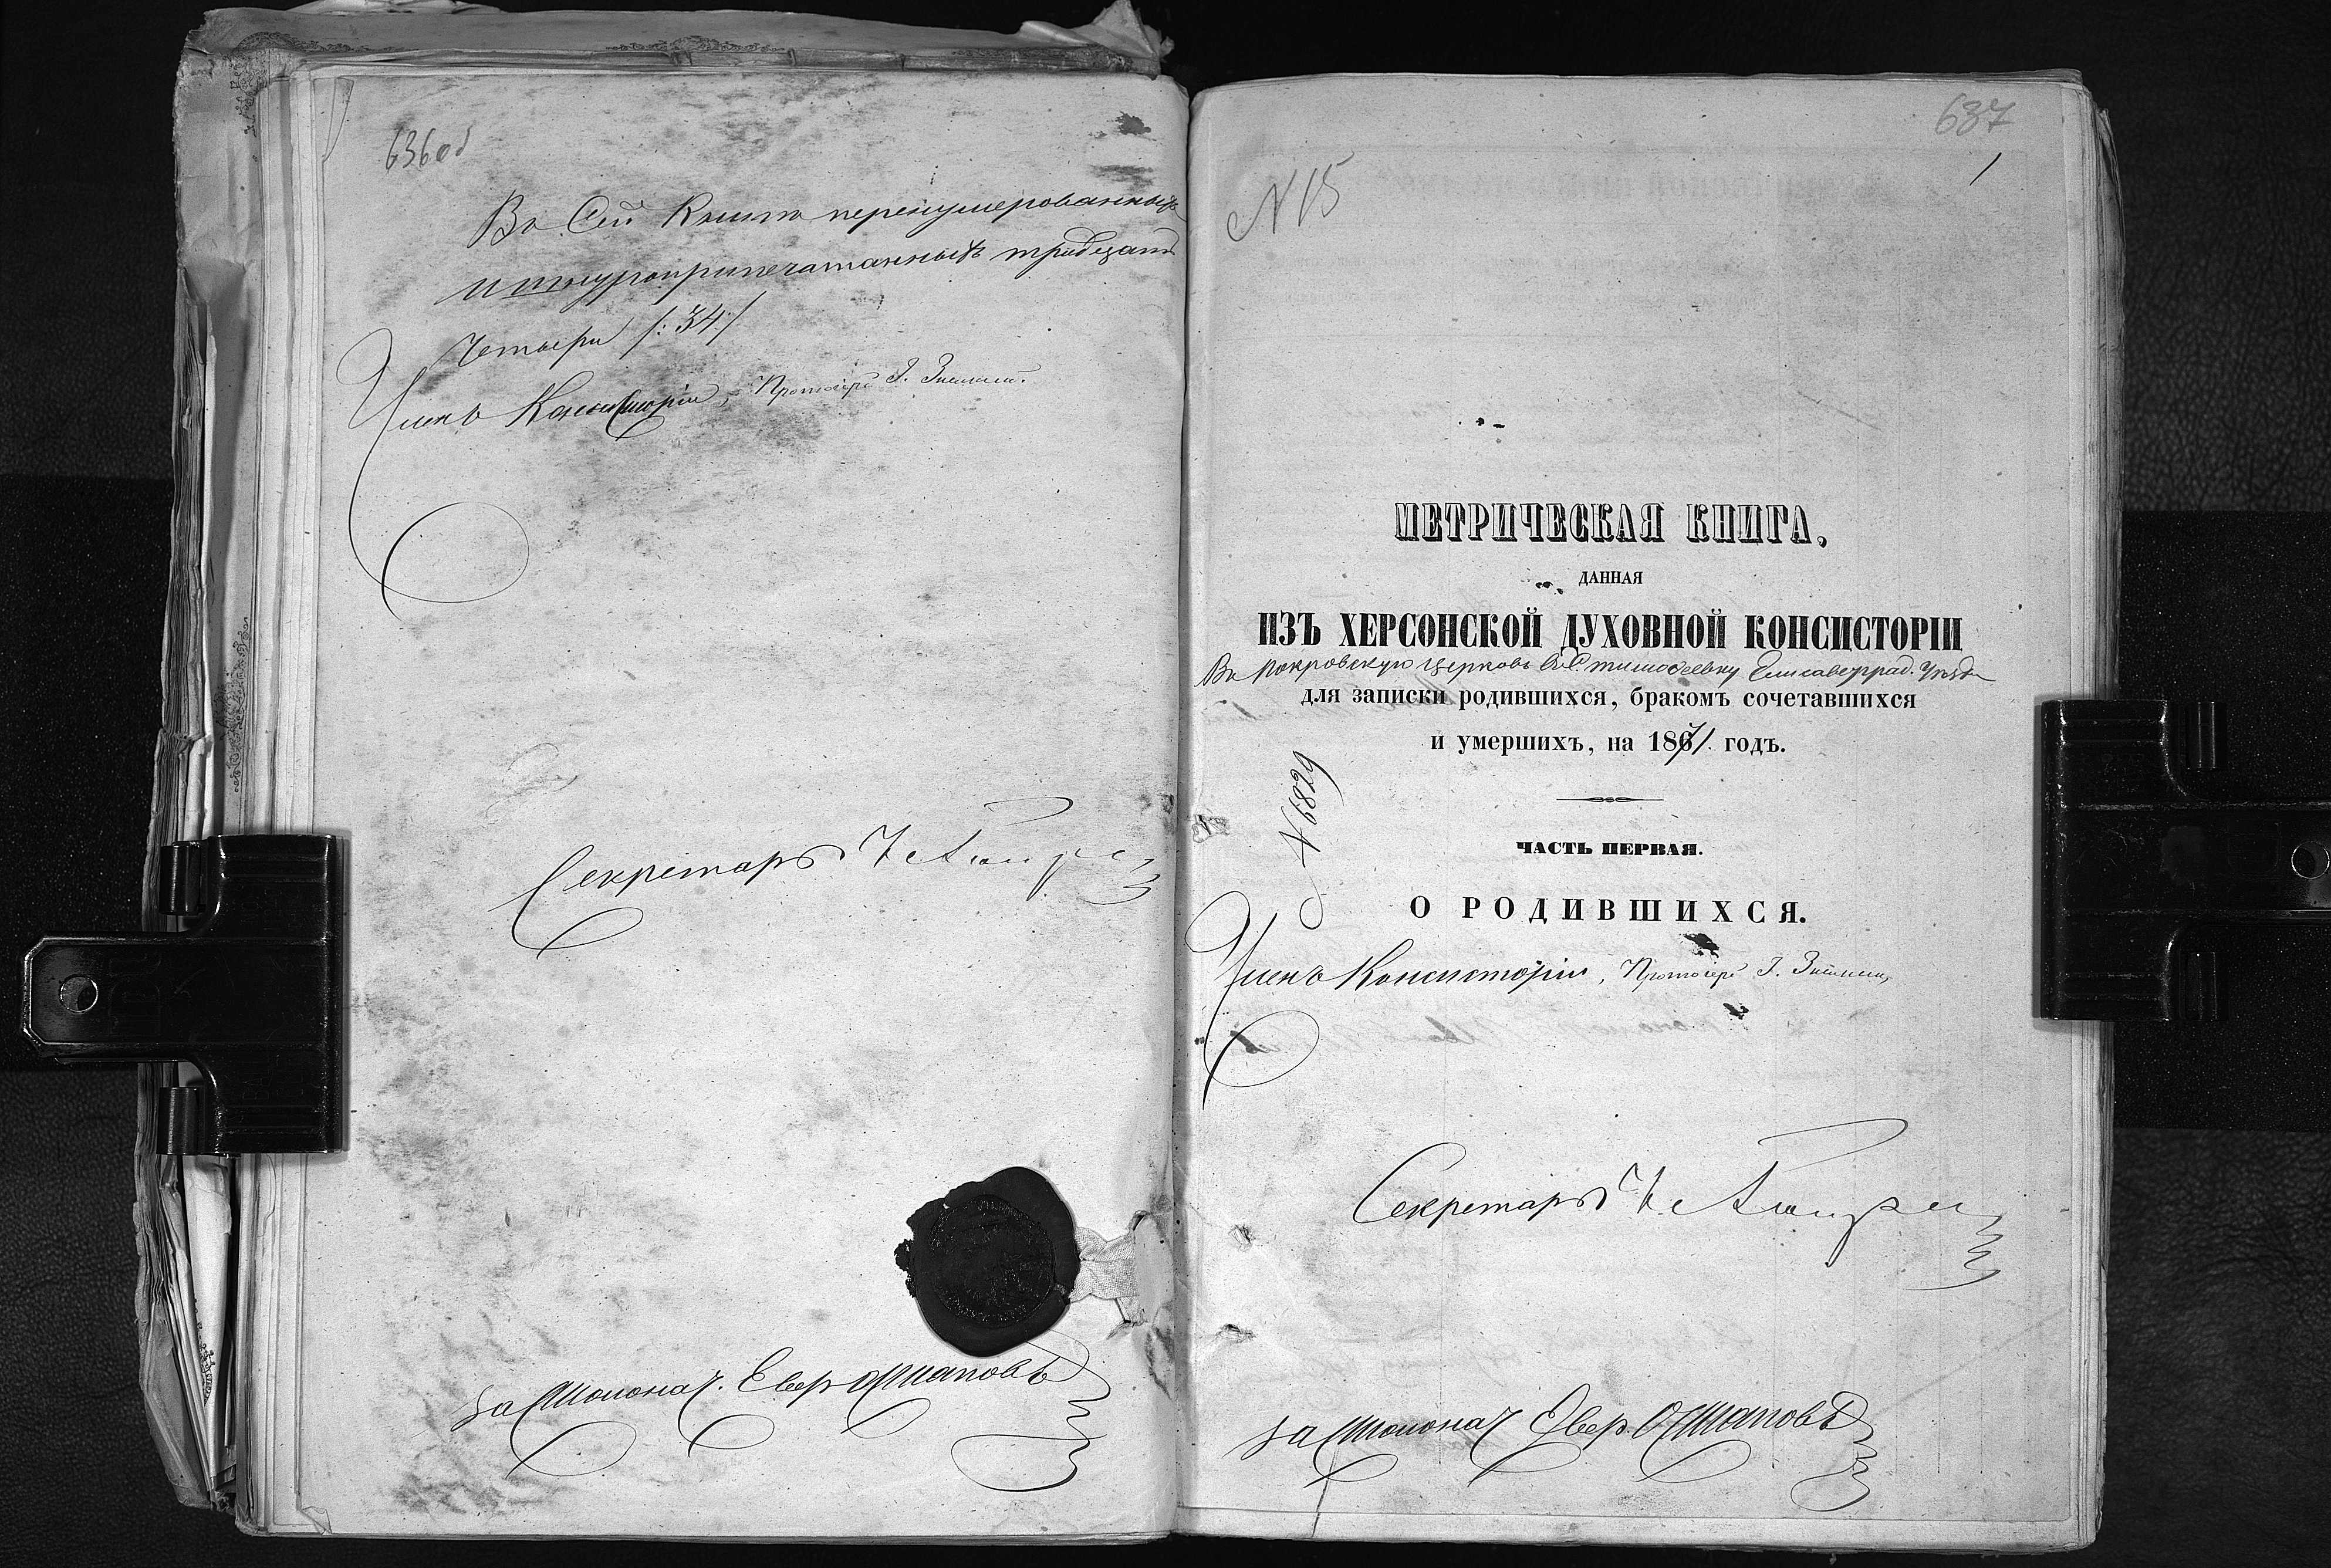 636 об
Въ Сей Книгѣ перенумерованныхъ
и шнуроприпечатанныхъ тридцать
Четыри /:34:/
Членъ Консисторіи, Протоіерей І.
Секретарь
За Столонач. Евер Остаповъ
637
1
N 15
МЕТРИЧЕСКАЯ КНИГА,
ДАННАЯ
ИЗЪ ХЕРСОНСКОЙ ДУХОВНОЙ КОНСИСТОРІИ
Въ Покровскую Церковь Елисаветград. Уѣзда
для записки родившихся, бракомъ сочетавшихся
и умершихъ, на 1871 годъ.
N 6829
ЧАСТЬ ПЕРВАЯ.
О РОДИВШИХСЯ.
Членъ Консисторіи, Протоіерей І.
Секретарь
За Столонач Евер. Остаповъ